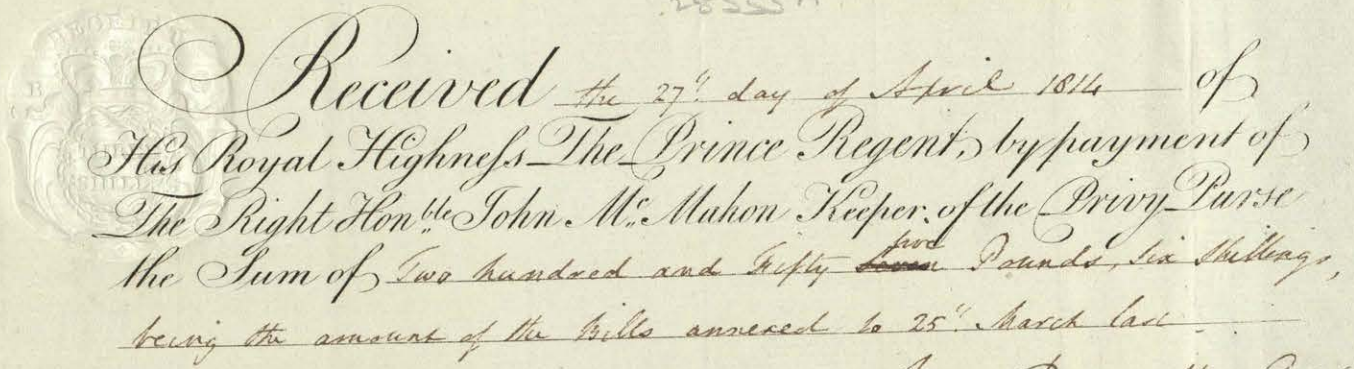 28555
Received the 27th day of April 1814 of
His Royal Highneſs The Prince Regent, by payment of
The Right Honble John Mc Mahon Keeper of the Privy Purse
the Sum of Two hundred and Fifty ~~Seven~~ five Pounds, Six Shillings,
being the amount of the Bills annexed to 25th March last